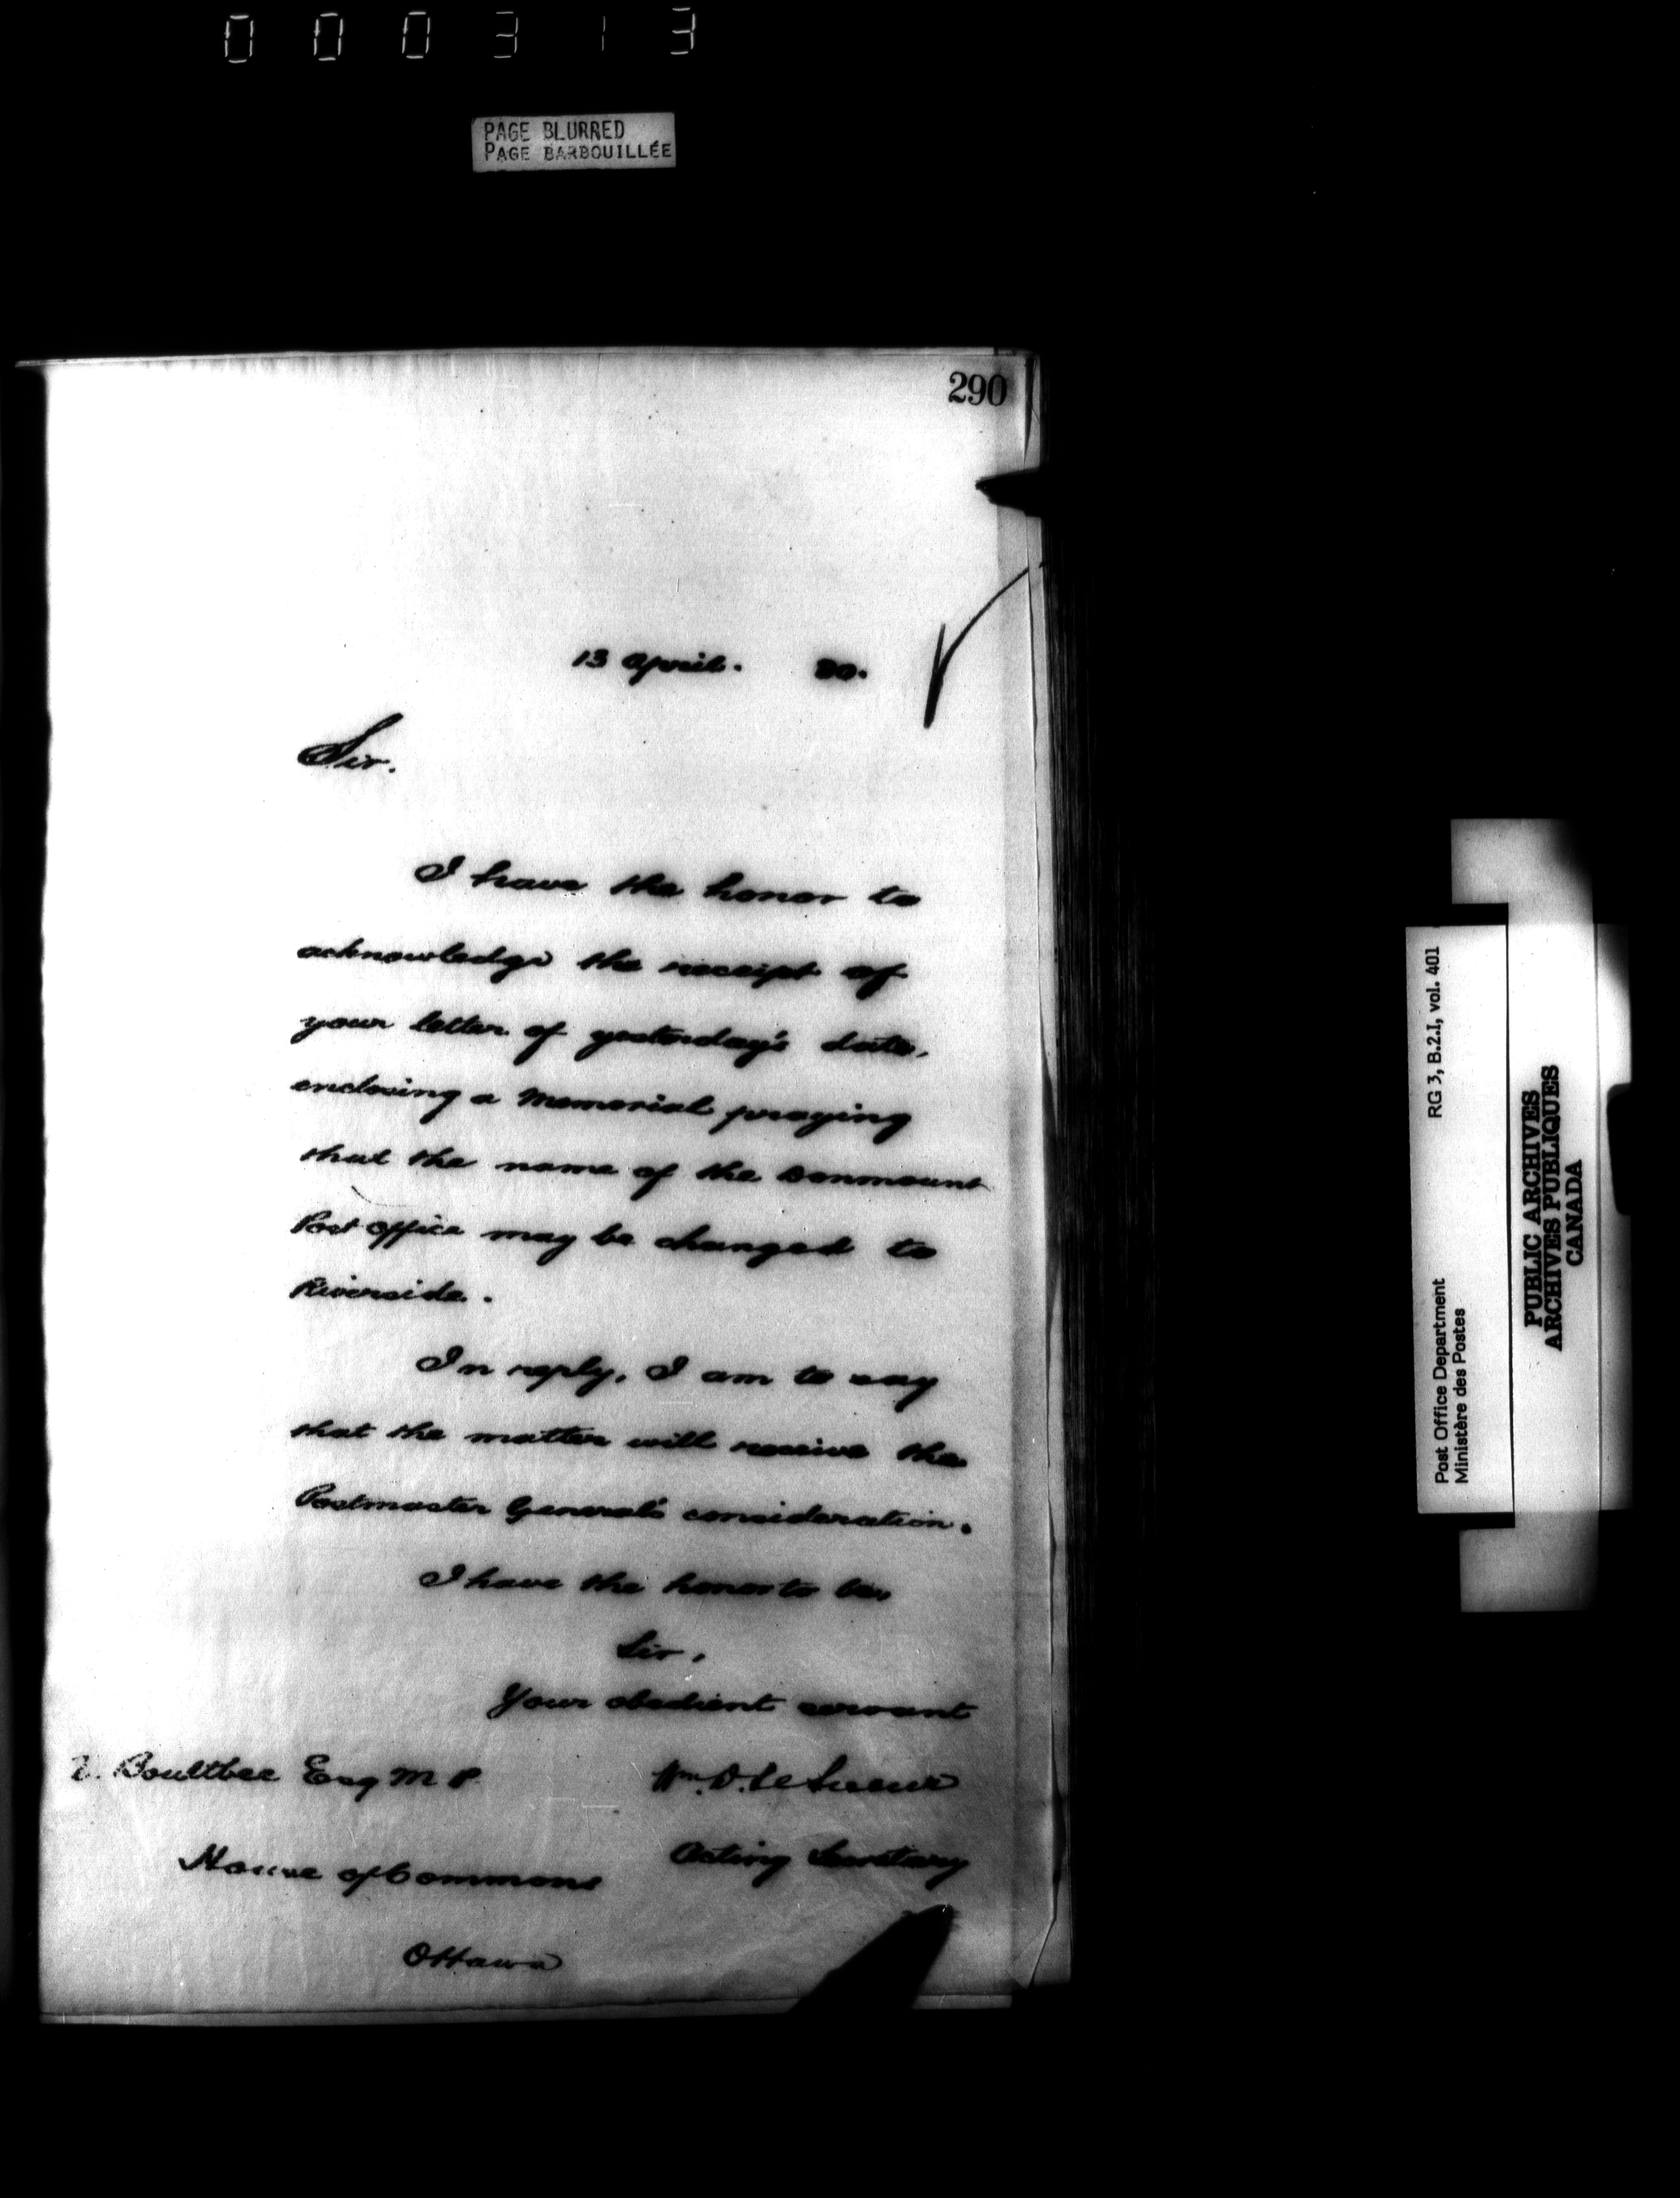 000313
PAGE BLURRED
PAGE BARBOUILLÉE
290
13 April. 80.
Sir.
I have the honor to
acknowledge the receipt of
your letter of yesterday's date,
enclosing a Memorial praying
that the name of the Donmount
Post Office may be changed to
Riverside.
In reply, I am to say
that the matter will receive the
Postmaster General's consideration.
I have the honor to be,
Sir,
Your obedient servant
Wm. D. LeSueur
Acting Secretary
Boultbee Esq M P
House of Commons
Ottawa
Post Office Department RG 3, B.2.I, vol. 401
Ministère des Postes
PUBLIC ARCHIVES
ARCHIVES PUBLIQUES
CANADA